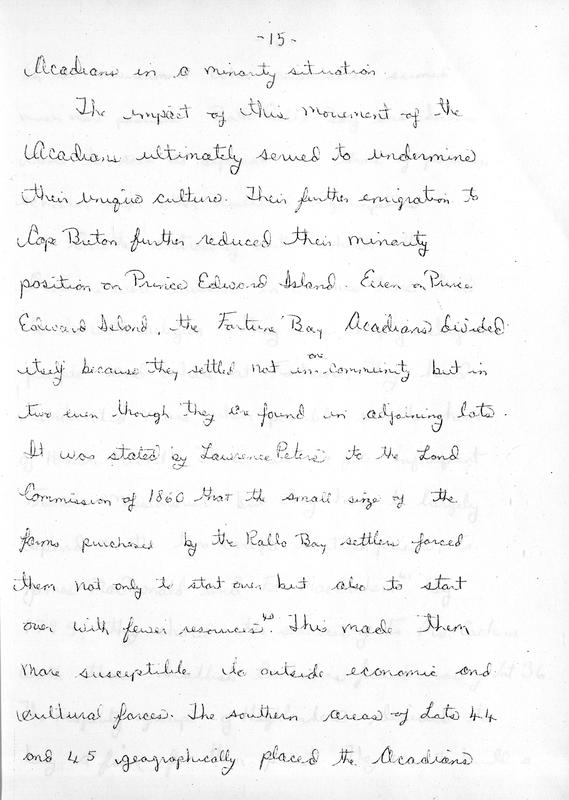 -15-
Acadians in a minority situation.
The impact of this movement of the
Acadians ultimately served to undermine
their unique culture. Their further emigration to
Cape Breton further reduced their minority
position on Prince Edward Island. Even on Prince
Edward Island, the Fortune Bay Acadians divided
itself because they settled not in one community but in
two even though they are found in adjoining lots.
It was stated by Lawrence Peters to the Land
Commission of 1860 that the small size of the
farms purchased by the Rallo Bay settlers forced
them not only to start over but also to start
over with fewer resources. This made them
more susceptible to outside economic and
cultural forces. The southern areas of Lots 44
and 45 geographically placed the Acadians